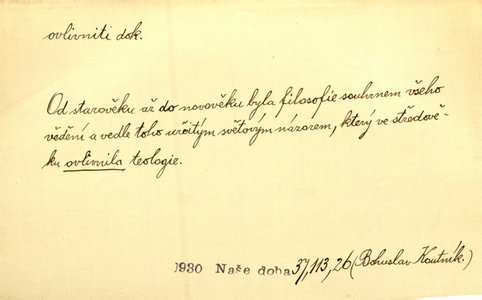 ovlivniti dok.
Od starověku až do novověku byla filosofie souhrnem všeho
vědění a vedle toho určitým světovým názorem, který ve středově-
ku ovlivnila teologie.
1930 Naše doba 37,113,26 (Bohuslav Koutník.)